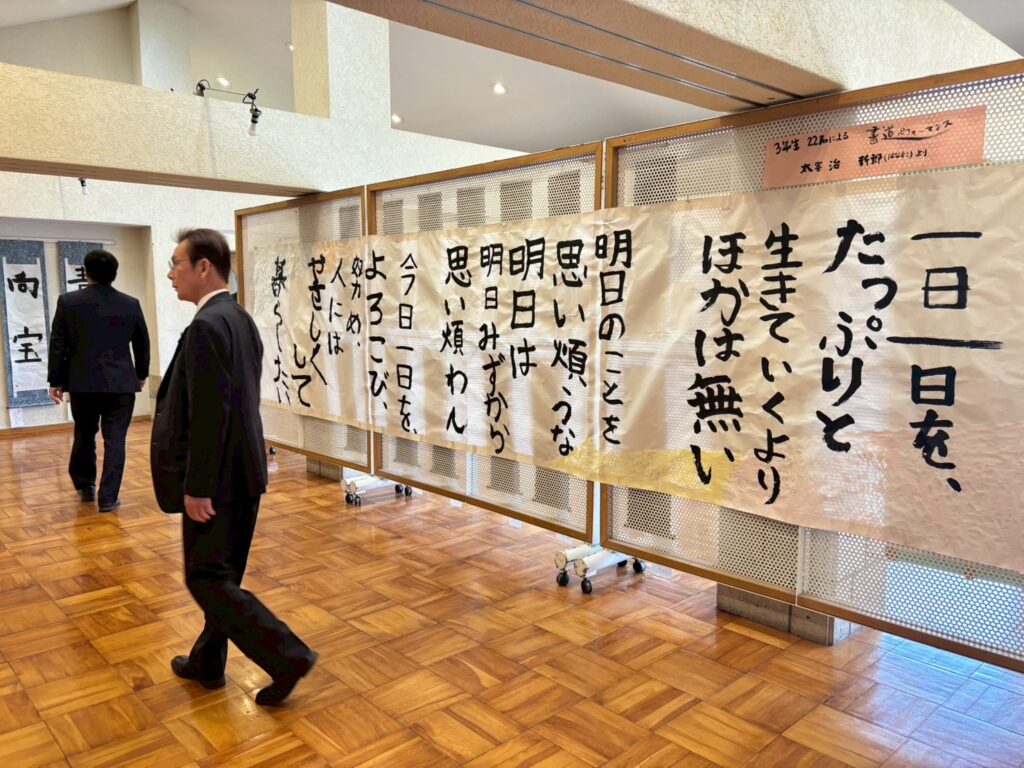 3年生 22名による 書道パフォーマンス
太宰 治 新郎(はなむこ)より
一日一日を、
たっぷりと
生きていくより
ほかは無い
明日のことを
思い煩うな
明日は
明日みずから
思い煩わん
今日一日を、
よろこび、
努め、
人には
やさしく
して
暮らしたい